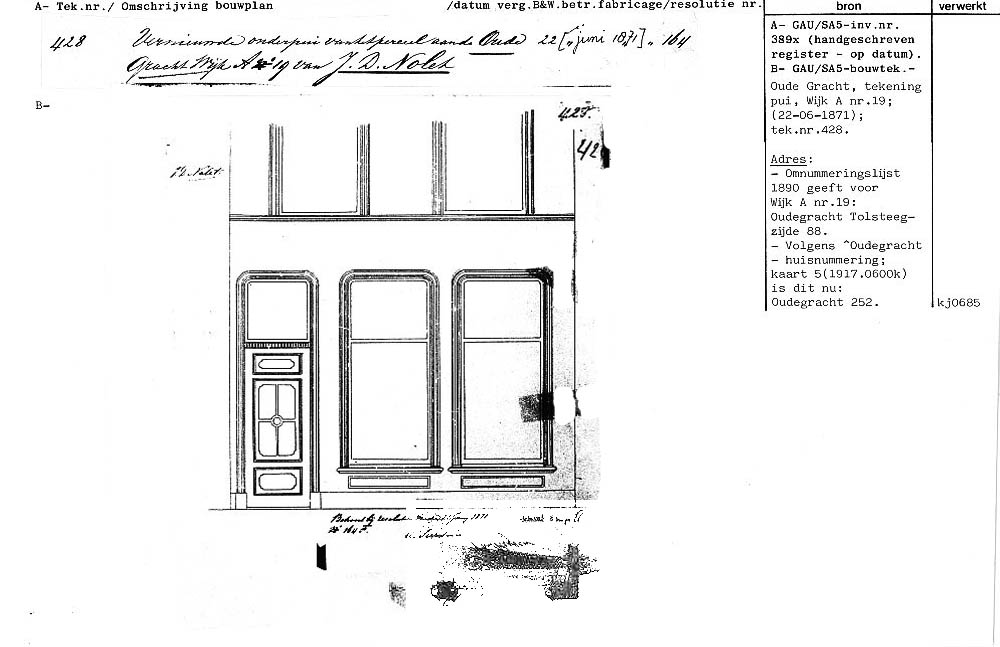 A- Tek.nr./ Omschrijving bouwplan /datum verg.B&W.betr.fabricage/resolutie nr.
428 Vernieuwde onderpui van het perceel aan de Oude 22 [juni 1871] 164
Gracht Wijk A no 19 van J. D. Nolet
B-
428.
42
J.D. Nolet.
Behoort bij resolutie 1871
no 164 F.
bron
verwerkt
A- GAU/SA5-inv.nr.
389x (handgeschreven
register - op datum).
B- GAU/SA5-bouwtek.-
Oude Gracht, tekening
pui, Wijk A nr.19;
(22-06-1871);
tek.nr.428.
Adres:
- Omnummeringslijst
1890 geeft voor
Wijk A nr.19:
Oudegracht Tolsteeg-
zijde 88.
- Volgens ^Oudegracht
- huisnummering;
kaart 5(1917.0600k)
is dit nu:
Oudegracht 252.
kj0685